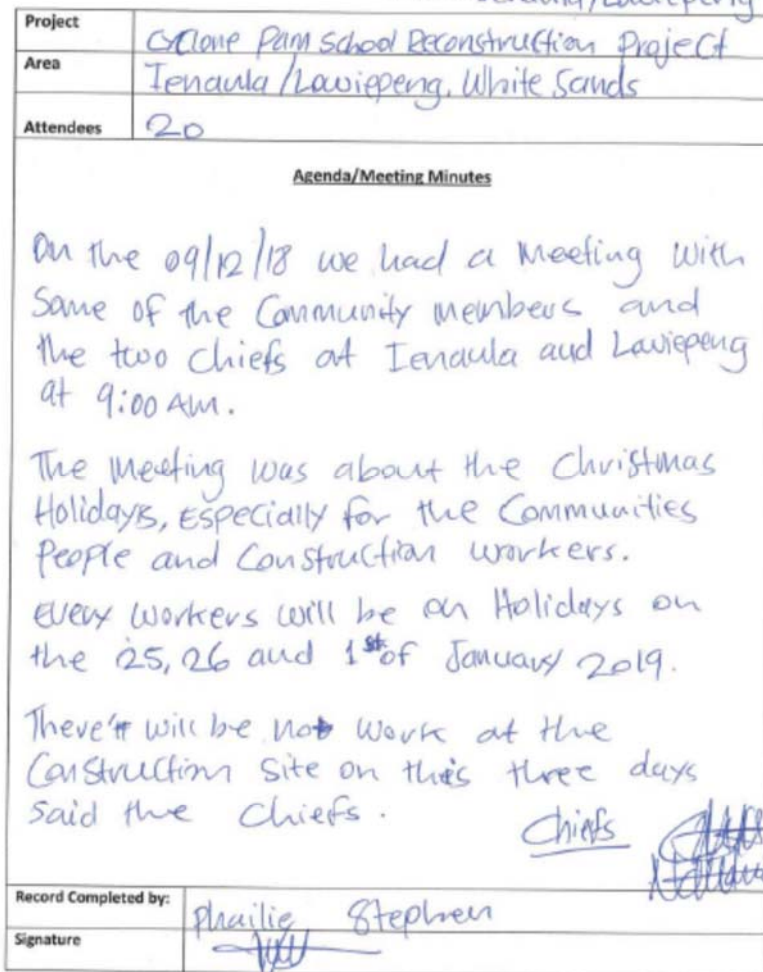 Ienaula/Lawiepeng
Project Cyclone Pam School Reconstruction Project
Area Ienaula/Lowiepeng, White Sands
Attendees 20
Agenda/Meeting Minutes
On the 09/12/18 we had a Meeting with
Some of the Community members and
the two Chiefs at Ienaula and Laviepeng
at 9:00 AM.
The Meeting was about the Christmas
Holidays, Especially for the Communities
People and Construction workers.
Every Workers will be on Holidays on
the 25, 26 and 1st of January 2019.
There will be not Work at the
Construction Site on this three days
said the Chiefs.
Chiefs
Record Completed by: Phailie Stephen
Signature